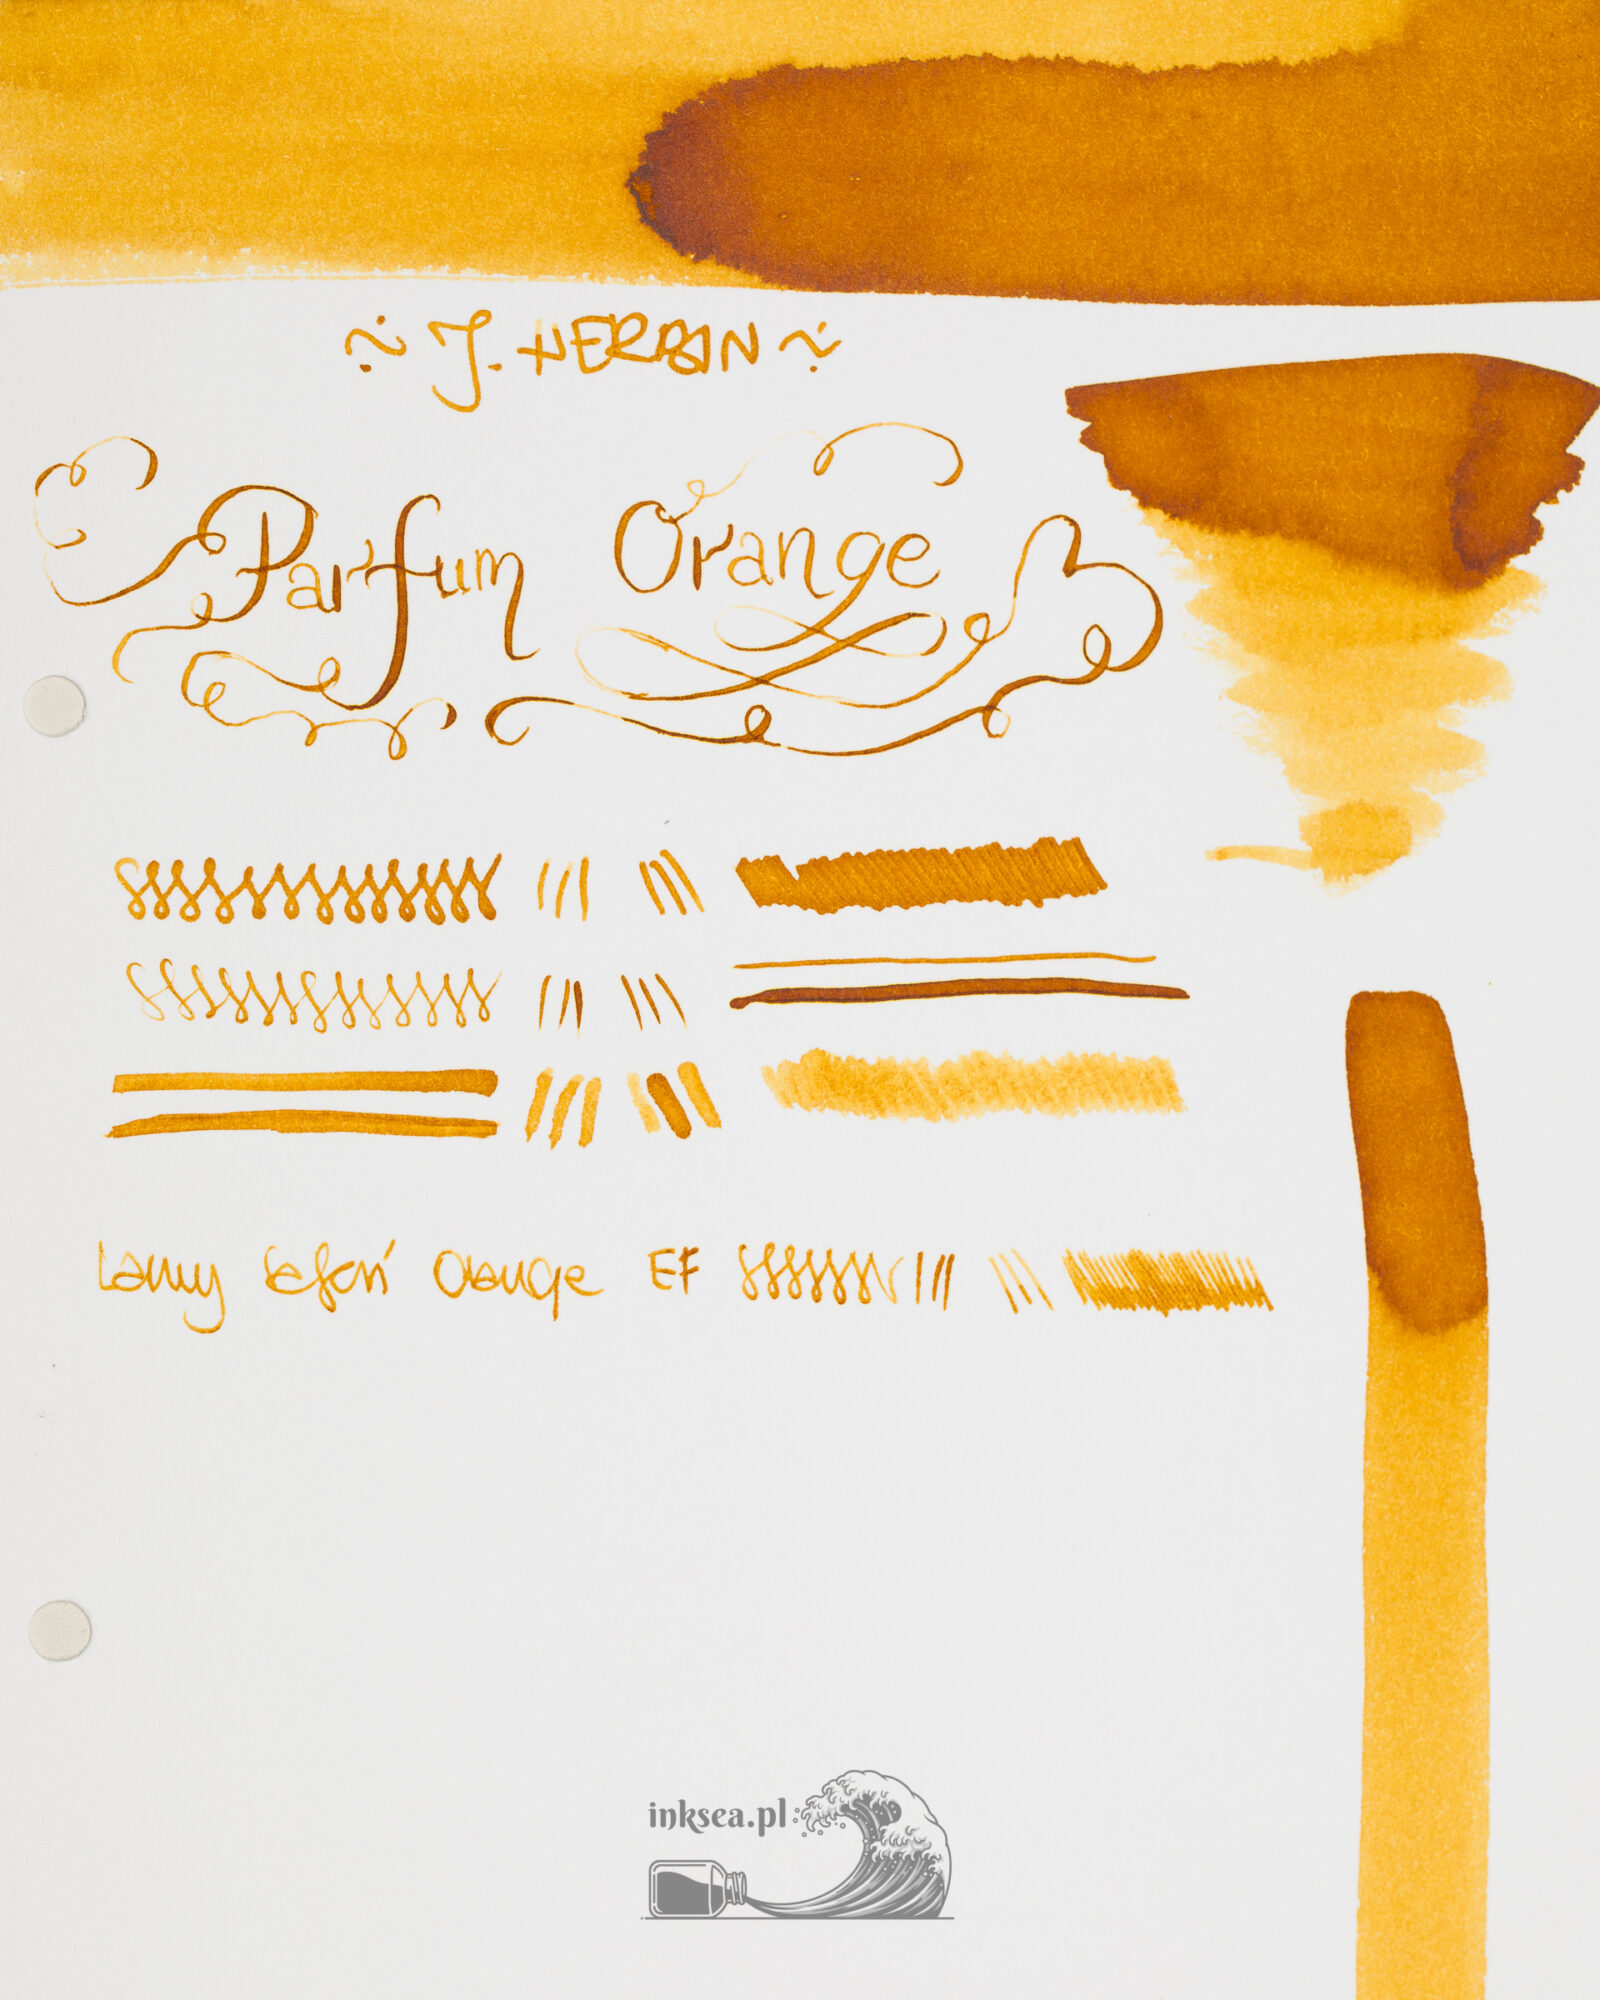 ~ J. HERBIN ~
Parfum Orange
Lamy Safari Orange EF
inksea.pl